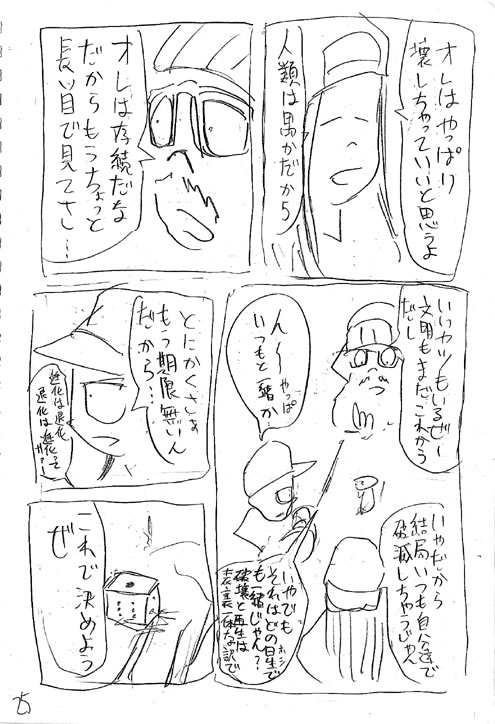 オレはやっぱり
壊しちゃっていいと思うよ
人類は愚かだから
オレは存続だな
だからもうちょっと
長い目で見てさ…
いいヤツもいるぜー
文明もまだこれから
だし
ん〜やっぱ
いつもと一緒か…
いやだから
結局いつも自分達で
破滅しちゃうじゃん
いやでも
それはどの星でも
も一緒じゃん?
破壊と再生は
表裏一体な訳で
とにかくさぁ
もう期限無いん
だから…
進化は退化
退化は進化って
かー
これで決めよう
ぜ